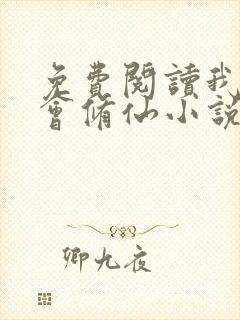 免費閱讀我
會脩仙小說
卿九夜